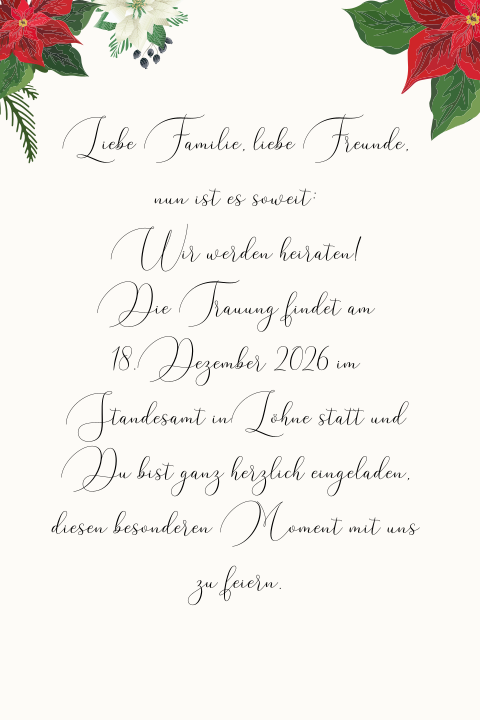 Liebe Familie, liebe Freunde,
nun ist es soweit:
Wir werden heiraten!
Die Trauung findet am
18. Dezember 2026 im
Standesamt in Löhne statt und
Du bist ganz herzlich eingeladen,
diesen besonderen Moment mit uns
zu feiern.